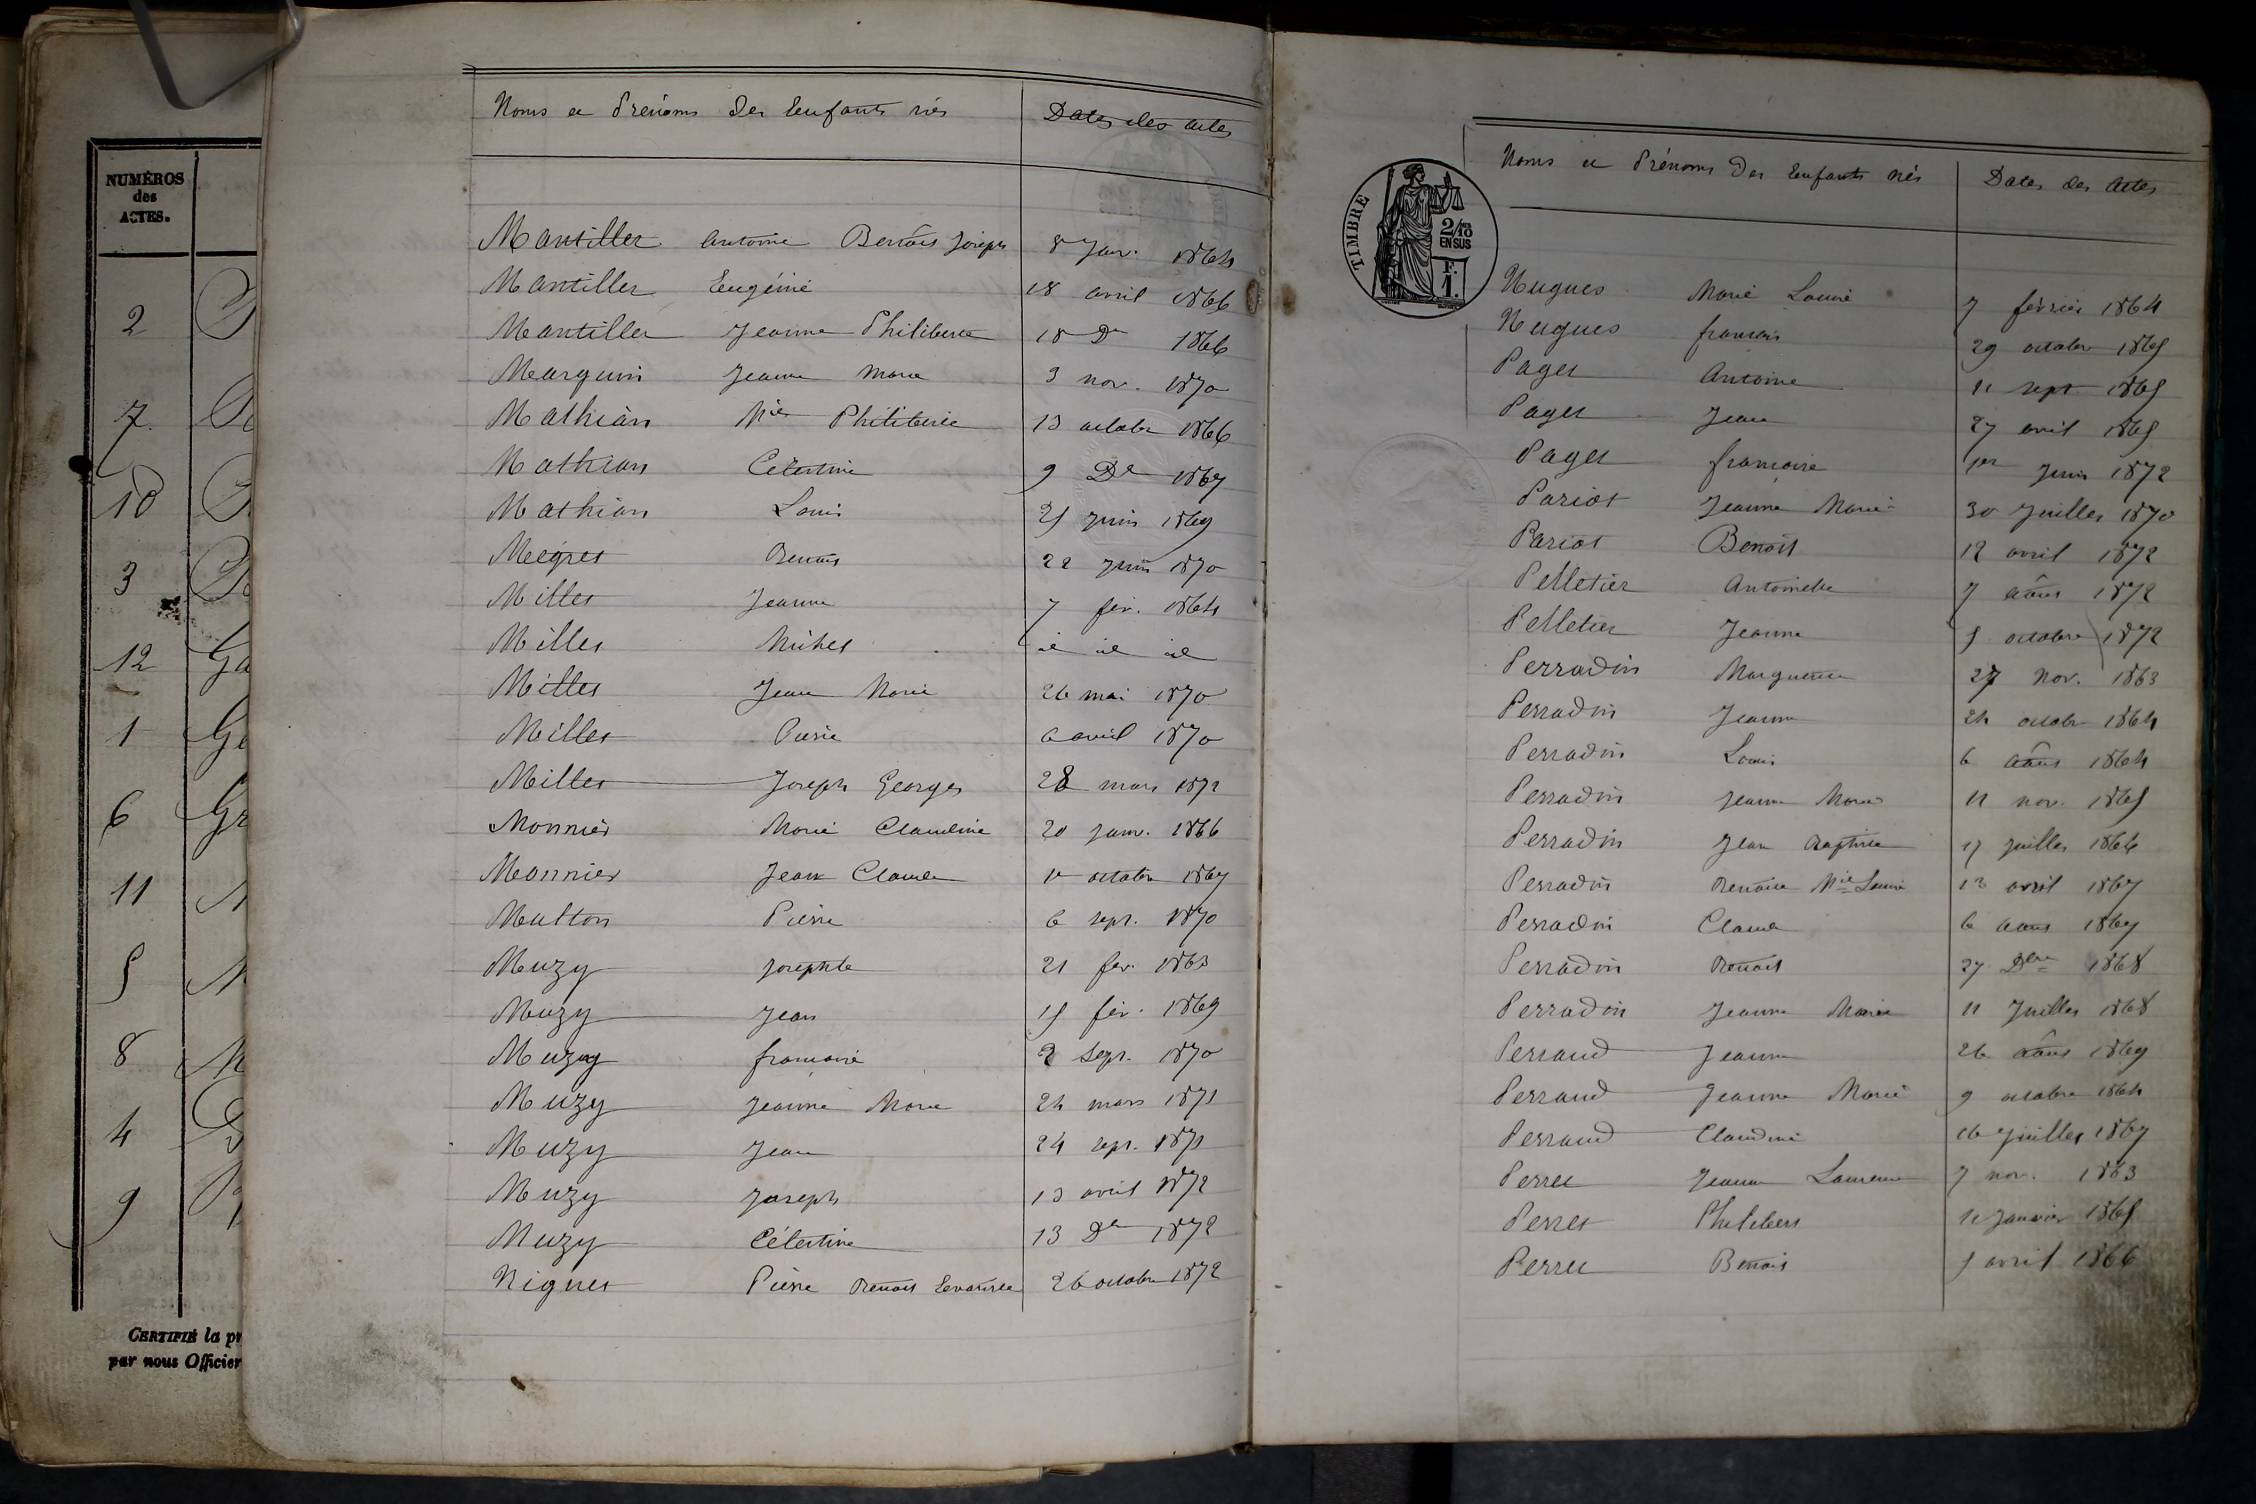 NUMÉROS
des
ACTES.
2
7
10
3
12 Ga
1 Ge
6 Gr
11
5
8
4
9
CERTIFIÉ la pr
par nous Officier
Noms et Prénoms des Enfants nés Dates des actes
Mantillet antoine Benoit Joseph 8 Janv. 1864
Mantillet Eugénie 18 avril 1866
Mantillet Jeanne Philiberte 18 De 1866
Marguin Jeanne Marie 3 nov. 1870
Mathian Mie Philiberte 13 octobre 1866
Mathian Celestine 9 De 1867
Mathian Louis 25 juin 1869
Benoit 22 juin 1870
Millet Jeanne 7 fev. 1864
Millet Michel id id id
Millet Jean Marie 26 mai 1870
Millet Pierre 6 avril 1870
Millet Joseph Georges 28 mars 1872
Monnier Marie Claudine 20 janv. 1866
Monnier Jean Claude 1er octobre 1867
Mutton Pierre 6 sept. 1870
Muzy Josephte 21 fev. 1863
Muzy Jean 15 fev. 1869
Muzy françoise 2 sept. 1870
Muzy Jeanne Marie 24 mars 1871
Muzy Jean 24 sept. 1871
Muzy Joseph 13 avril 1872
Muzy Célestine 13 De 1872
Niguet Pierre Benoit 26 octobre 1872
TIMBRE
2/10
EN SUS
F.
1.
Noms et Prénoms des Enfants nés Dates des Actes
Nugues Marie Louise 7 février 1864
Nugues francois 29 octobre 1865
Paget Antoine 11 sept. 1865
Paget Jean 27 avril 1865
Paget francoise 1er Juin 1872
Pariot Jeanne Marie 30 Juillet 1870
Pariot Benoit 12 avril 1872
Pelletier Antoinette 7 août 1872
Pelletier Jeanne 5 octobre 1872
Perradin Marguerite 27 Nov. 1863
Perradin Jeanne 24 octobre 1864
Perradin Louis 6 août 1864
Perradin Jeanne Marie 11 nov. 1865
Perradin Jean Baptiste 17 Juillet 1866
Perradin Benoite Mie Louise 13 avril 1867
Perradin Claude 6 aout 1867
Perradin Benoit 27 Dbre 1868
Perradin Jeanne Marie 11 Juillet 1868
Perraud Jeanne 26 août 1869
Perraud Jeanne Marie 9 octobre 1864
Perraud Claudine 16 Juillet 1867
Perret Jeanne Laurence 7 nov. 1863
Perret Philibert 11 Janvier 1865
Perret Benoit 5 avril 1866